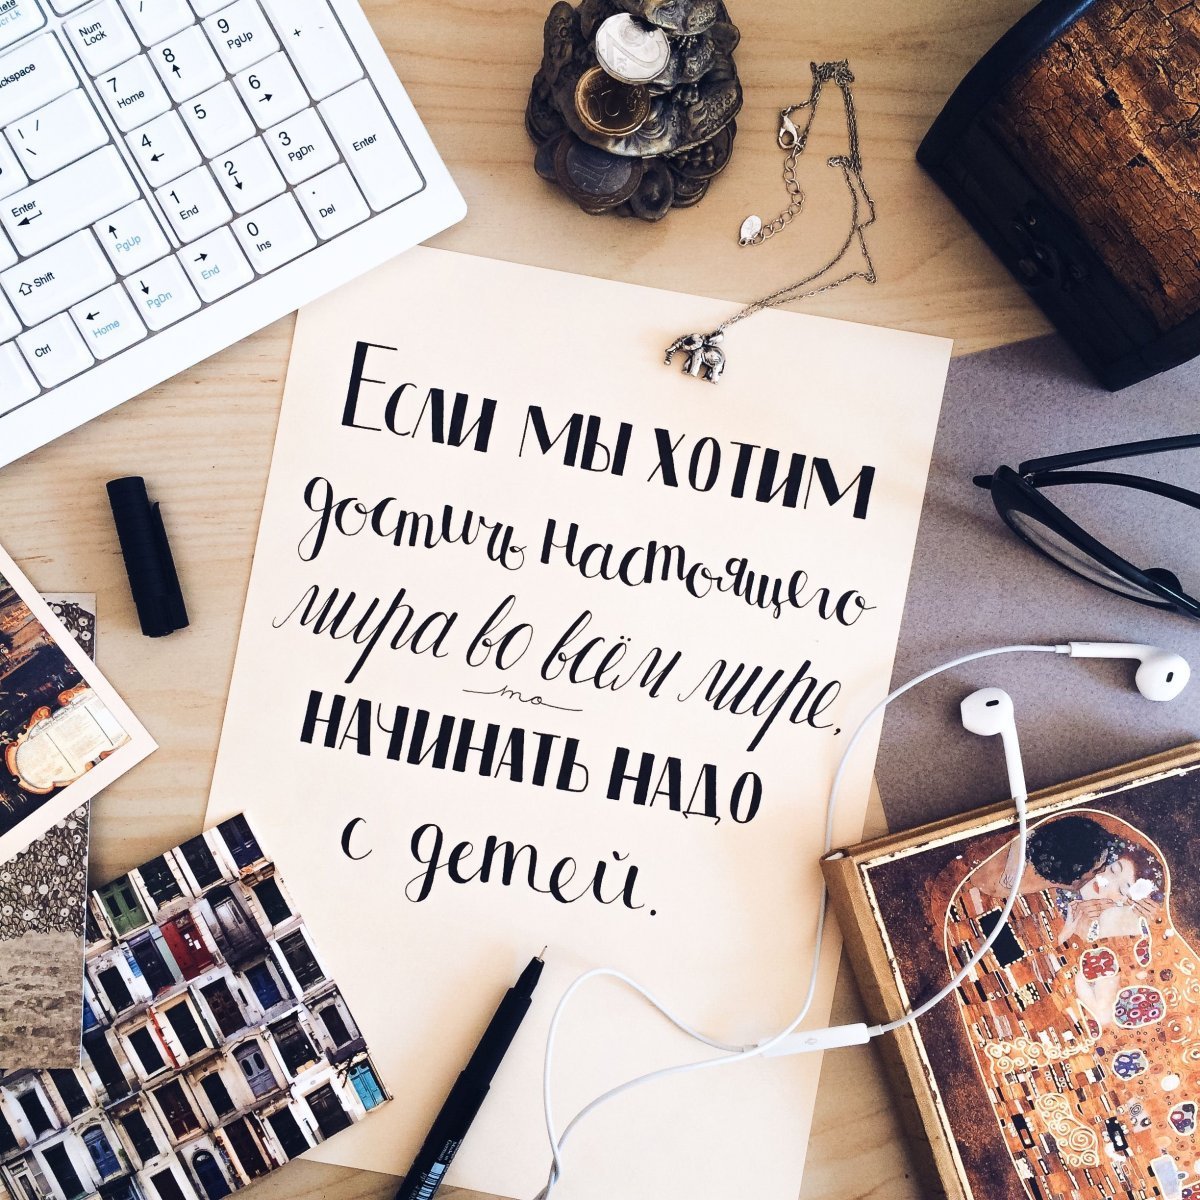 Delete
Scr Lk
Num
Lock
/
9
PgUp
+
Backspace
7
Home
8
\
/
4
5
6
Enter
1
End
2
3
PgDn
Enter
Shift
PgUp
0
Ins
.
Del
Ctrl
Home
PgDn
End
Если мы хотим
достичь настоящего
мира во всём мире,
то
НАЧИНАТЬ НАДО
с детей.